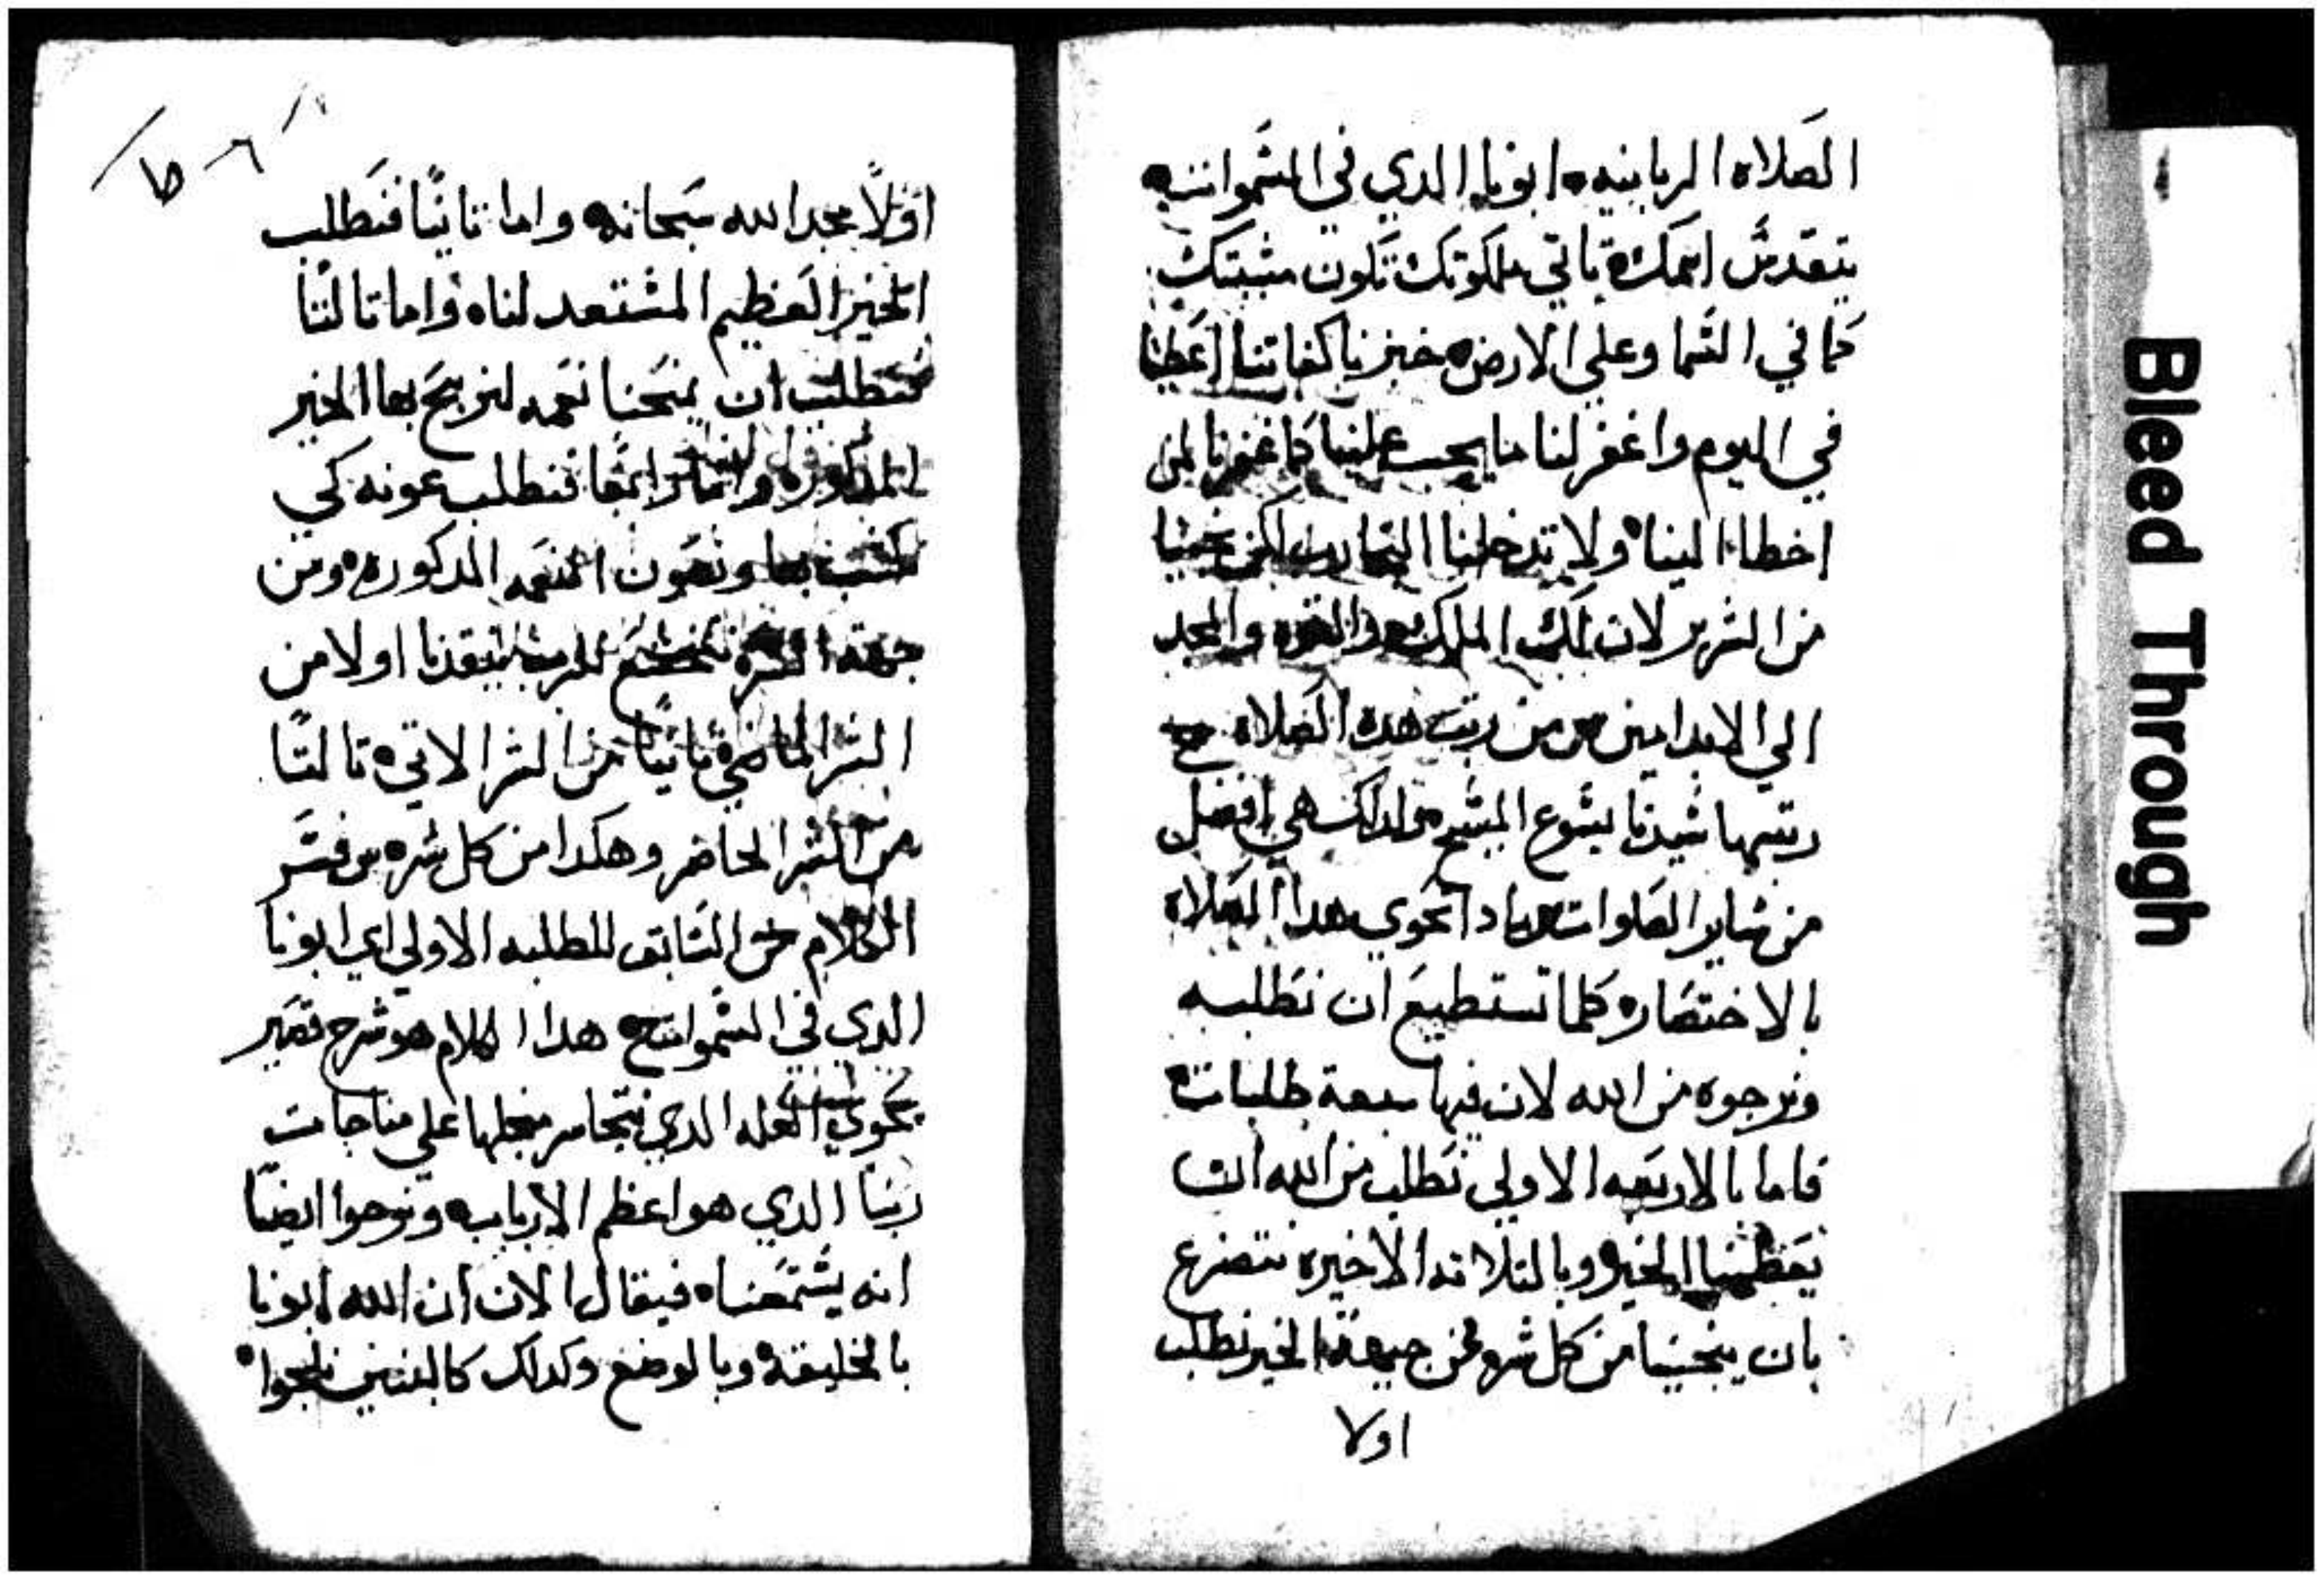 الصلاه الربانيه ابونا الدي في السموات
يتقدس اسمك تاتي ملكوتك تكون مشيتك
كما في السما وعلي الارض خبزنا كفاتنا اعطينا
في اليوم واغفر لنا ما يجب علينا كما غفرنا لمن
اخطا الينا ولا تدخلنا التجارب لكن نجينا
من الشرير لان لك الملك والقوه والمجد
الي الابد امين س من رتب هده الصلاه ج
رتبها سيدنا يسوع المسيح ولدلك هي افضل
من ساير الصلوات س مادا تحوي هدا الصلاه
بالاختصار كلما نستطيع ان نطلبه
ونرجوه من الله لان فيها سبعة طلبات
فاما بالاربعه الاولي نطلب من الله ان
يعطينا الخير وبالتلاته الاخيره نتضرع
بان ينجينا من كل شر فمن جهة الخير نطلب
اولا
اولًا مجد الله سبحانه واما تانيًا فنطلب
الخير العظيم المستعد لنا واما تالتًا
فنطلب ان يمنحنا نعمه لنربح بها الخير
المدكوره واما رابعًا فنطلب عونه كي
نكتسب بها ونصون النعمه المدكوره ومن
جهة الشر نتخشع للرب لينقدنا اولا من
الشر الماضي تانيًا من الشر الاتي تالتًا
من الشر الحاضر وهكدا من كل شر س فسر
الكلام السابق للطلبه الاولي اي ابونا
الدي في السموات ج هدا الكلام هو شرح
يحوي العله الدي نتجاسر منجلها علي مناجات
ربنا الدي هو اعظم الارباب ونرجوا ايضًا
انه يستمعنا فيقال الان ان الله ابونا
بالخليقة وبالوضع وكدلك كالبنين نلجوا
Bleed Through